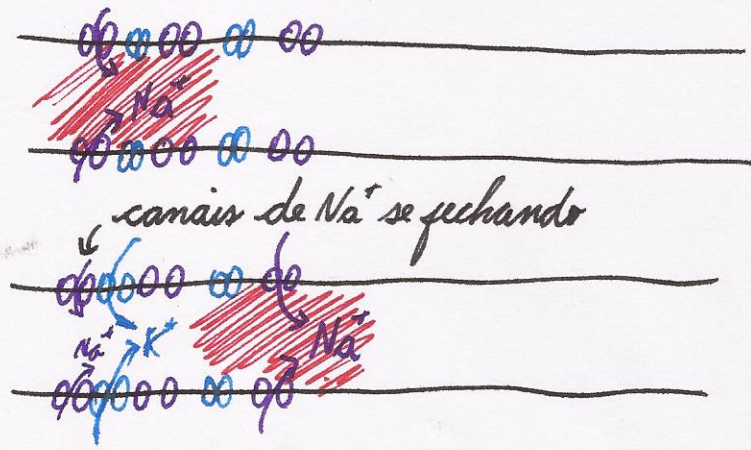 Na⁺
canais de Na⁺ se fechando
Na⁺ K⁺ Na⁺